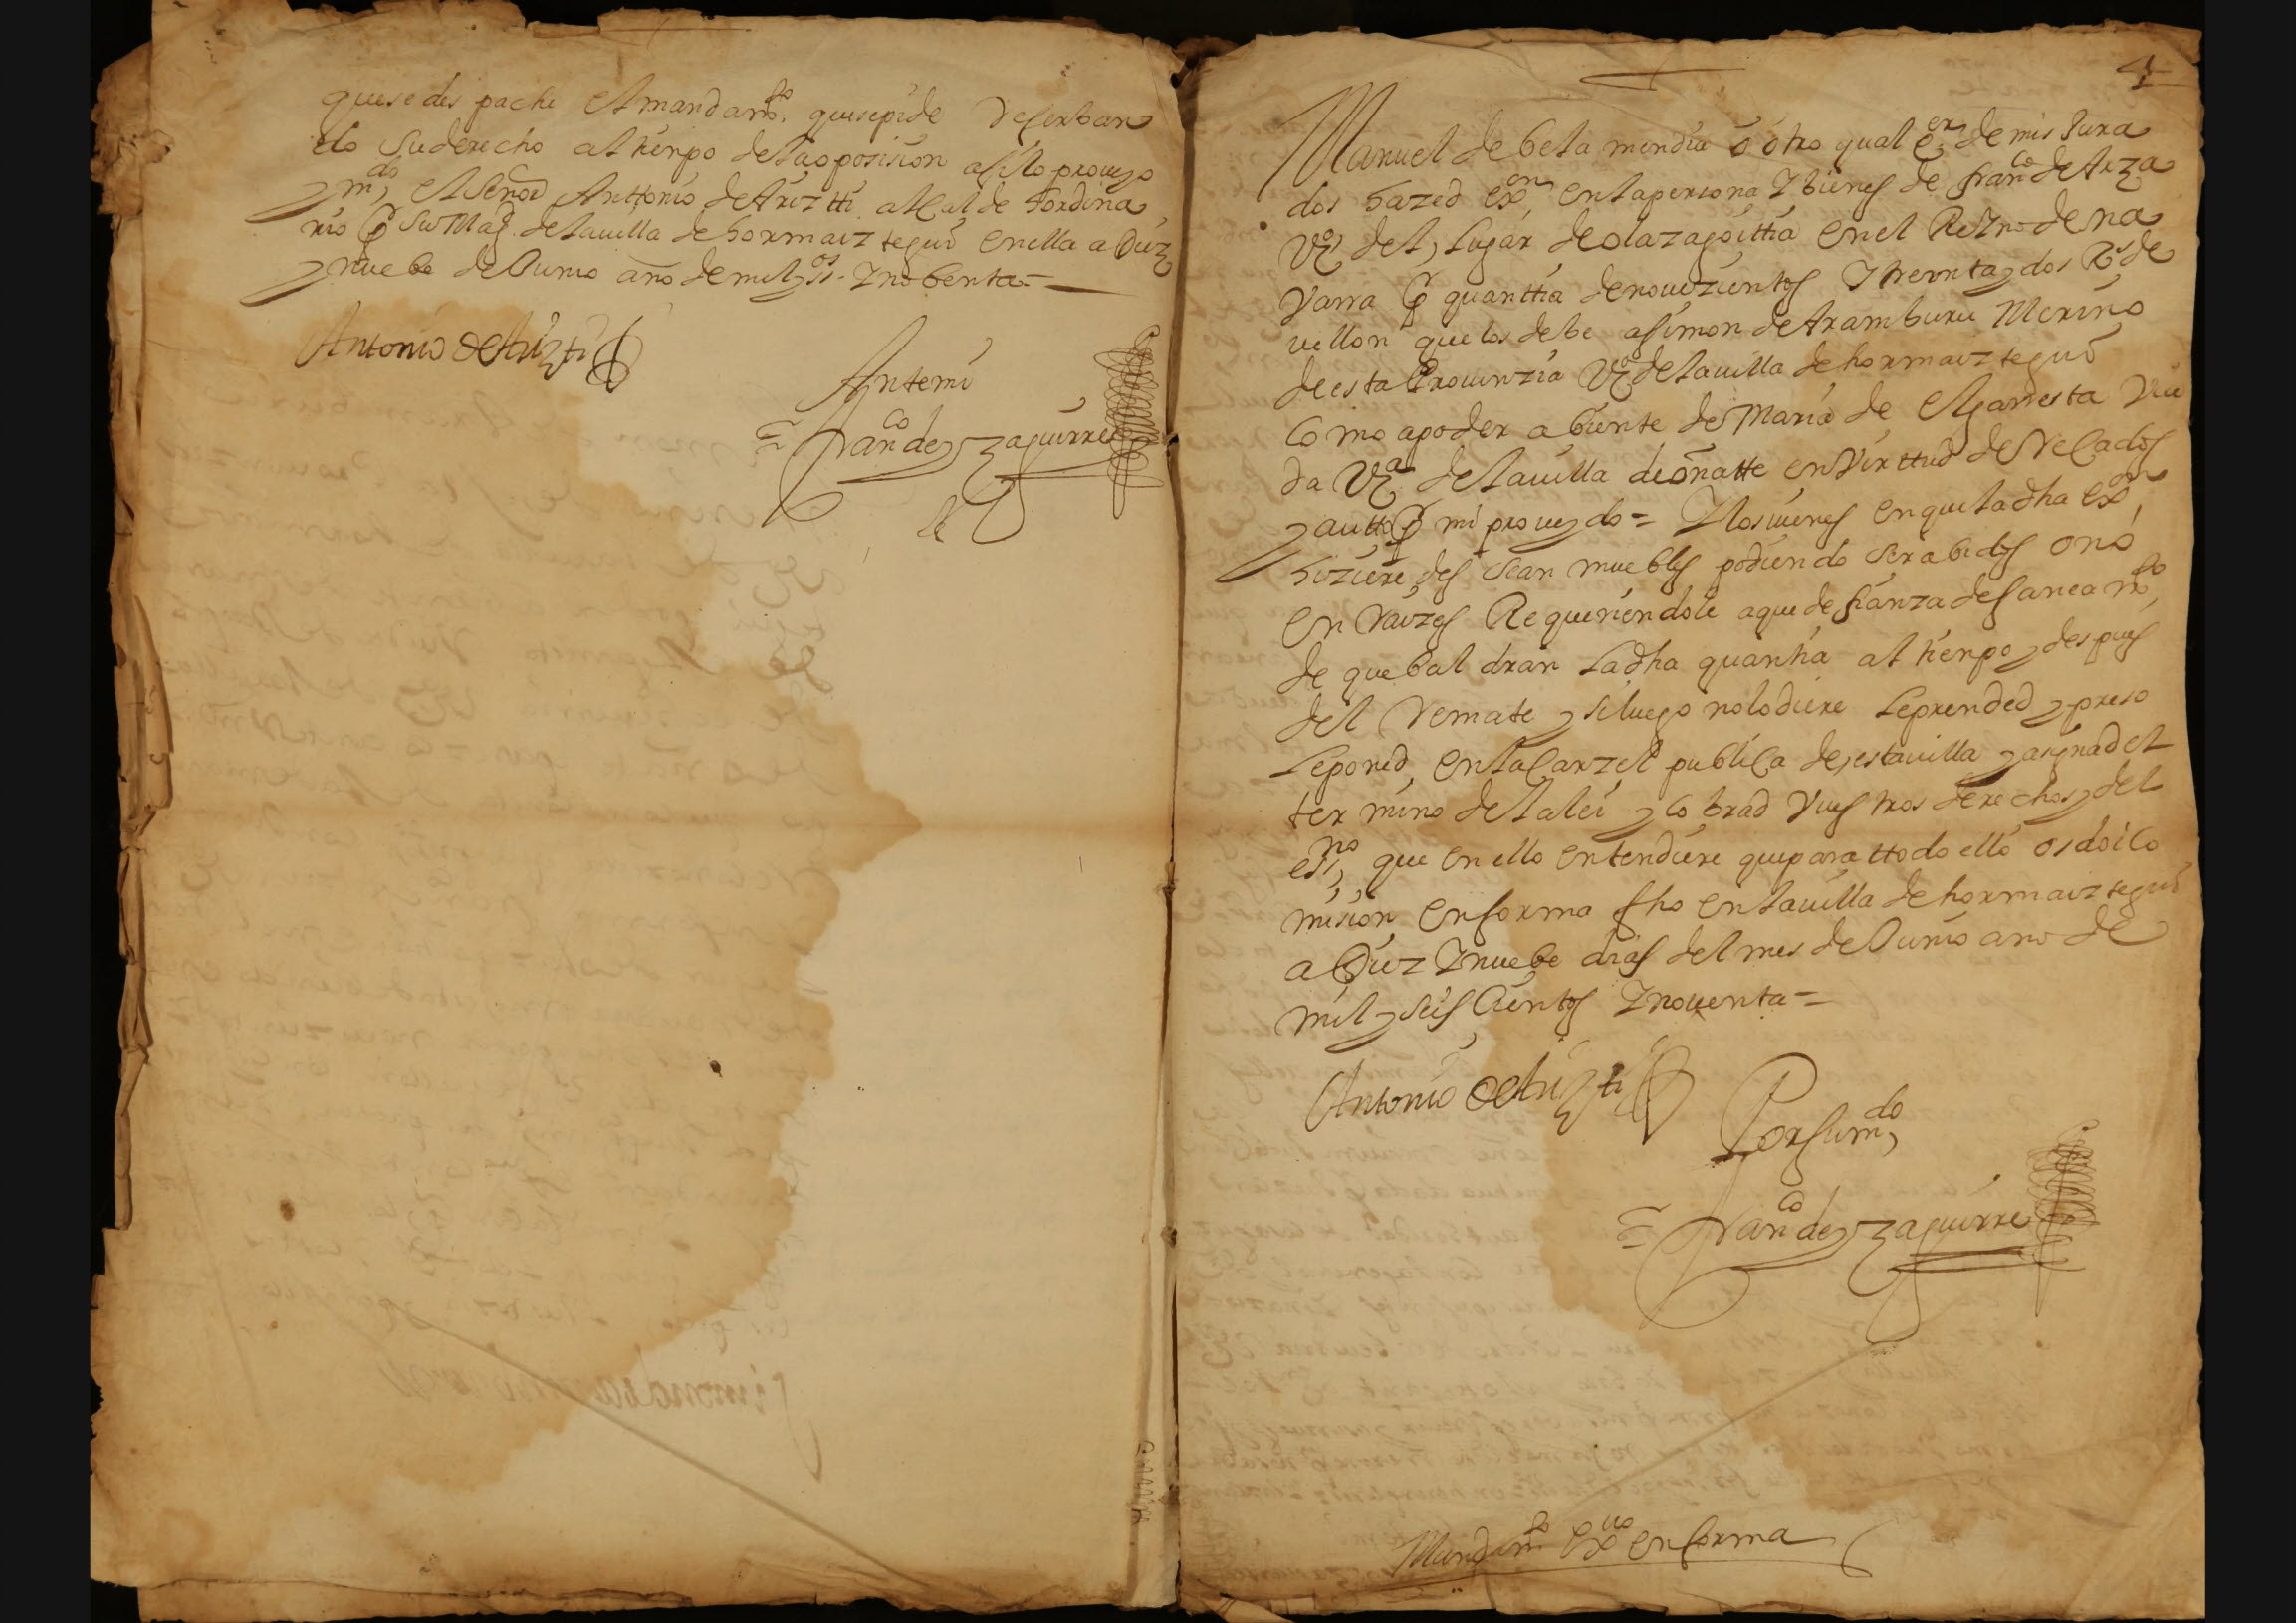 que se despache el mandamto. que se pide reserban
do su derecho al tienpo de la oposision assi lo proueyo
y mdo el Señor Anttonio de Ariztti alcalde hordina
rio por su Magd. de la uilla de hormaiztegui en ella a Diez
y nuebe de Junio año de mil y ssos. y nobenta =
Antonio de Arizti
Ante mi
Franco de Yzaguirre
4
Manuel de Beta mendia o otro qual qer de mis Jura
dos hazed exon en la persona y bienes de franco de Arza
vzo del lugar de olazagoittia en el Reyno de na
varra por quanttia de nouezientos y treynta y dos Rs de
vellon que los debe a simon de Aramburu Merino
de esta Prouinzia vzo de la uilla de hormaiztegui
como apoder abiente de Maria de Elgarresta viu
da vza de la uilla de oñatte en virttud de recados
y autto por mi proueydo = y los vienes en que la dha exon
hiziere des sean muebles pudiendo ser abidos o no
en raizes Requeriendole a que de fianza de saneamto
de que baldran la dha quantia al tienpo y despues
del remate y si luego no lo diere le prended y preso
le poned en la carzel publica de esta uilla y asignad el
termino de la lei y cobrad vuestros derechos y del
essno que en ello entendiere que para ttodo ello os doi co
mision en forma fho en la uilla de hormaiztegui
a Diez y nuebe dias del mes de Junio año de
mil y seiscientos y nouenta =
Antonio de Arizti
Por su mdo
Franco de Yzaguirre
Mandamto exuo en forma